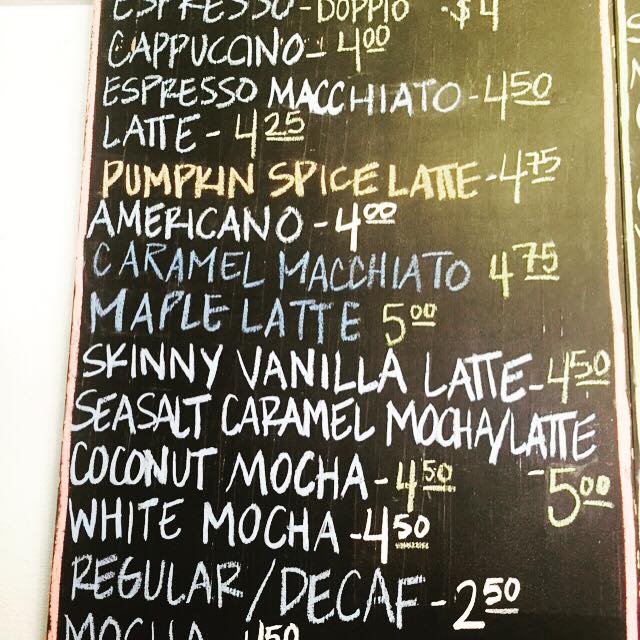 ESPRESSO-DOPPIO -$4
CAPPUCCINO- 4.00
ESPRESSO MACCHIATO-4.50
LATTE - 4.25
PUMPKIN SPICE LATTE-4.75
AMERICANO - 4.00
CARAMEL MACCHIATO 4.75
MAPLE LATTE 5.00
SKINNY VANILLA LATTE-4.50
SEASALT CARAMEL MOCHA/LATTE
-5.00
COCONUT MOCHA - 4.50
WHITE MOCHA -4.50
REGULAR/DECAF - 2.50
MOCHA 4.50